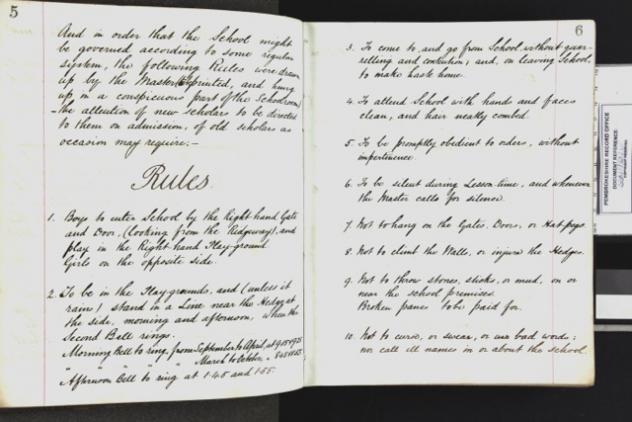 5
And in order that the School might
be governed according to some regular
system, the following Rules were drawn
up by the Master & printed, and hung
up in a conspicuous part of the Schoolroom
- the attention of new scholars to be directed
to them on admission, of old scholars as
occasion may require. -
Rules.
1. Boys to enter School by the Right hand Gate
and Door, (looking from the Ridgeway), and
play in the Right hand Play-ground.
Girls on the opposite side.
2. To be in the Playgrounds, and (unless it
rains) stand in a Line near the Hedge at
the side, morning and afternoon, when the
Second Bell rings.
Morning bell to ring, from September to April, at 9.15
" " " " " March to October, "
Afternoon Bell to ring at 1.45 and 1.55.
6
3. To come to, and go from School without quar-
relling and contention; and, on leaving School,
to make haste home.
4. To attend School with hands and faces
clean, and hair neatly combed.
5. To be promptly obedient to orders, without
impertinence.
6. To be silent during Lesson-time, and whenever
the Master calls for silence.
7. Not to hang on the Gates, Doors, or Hat pegs.
8. Not to climb the Walls, or injure the Hedges.
9. Not to throw stones, sticks, or mud, on or
near the school premises.
Broken panes to be paid for.
10. Not to curse, or swear, or use bad words:
nor call ill names in or about the school
PEMBROKESHIRE RECORD OFFICE
DOCUMENT REFERENCE